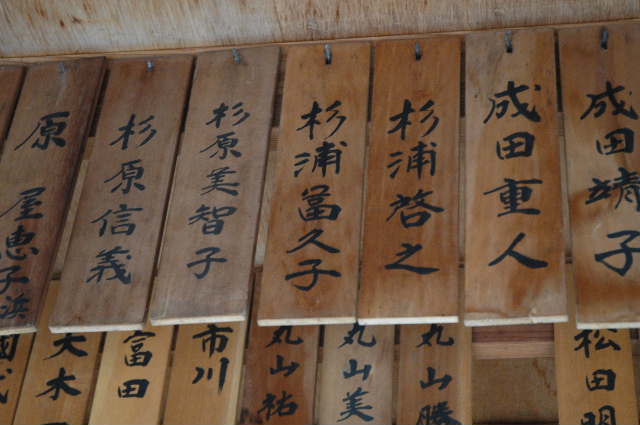 成田靖子
成田重人
杉浦啓之
杉浦冨久子
杉原美智子
杉原信義
原
屋恵子
浜
松田明
丸山勝
丸山美
丸山祐
市川
富田
大木